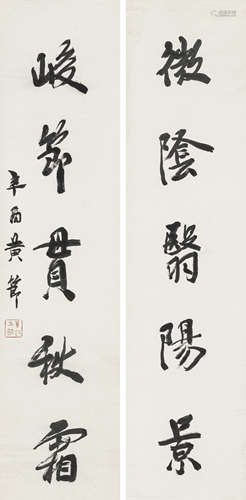 微陰翳陽景
峻節貫秋霜
辛酉黃節